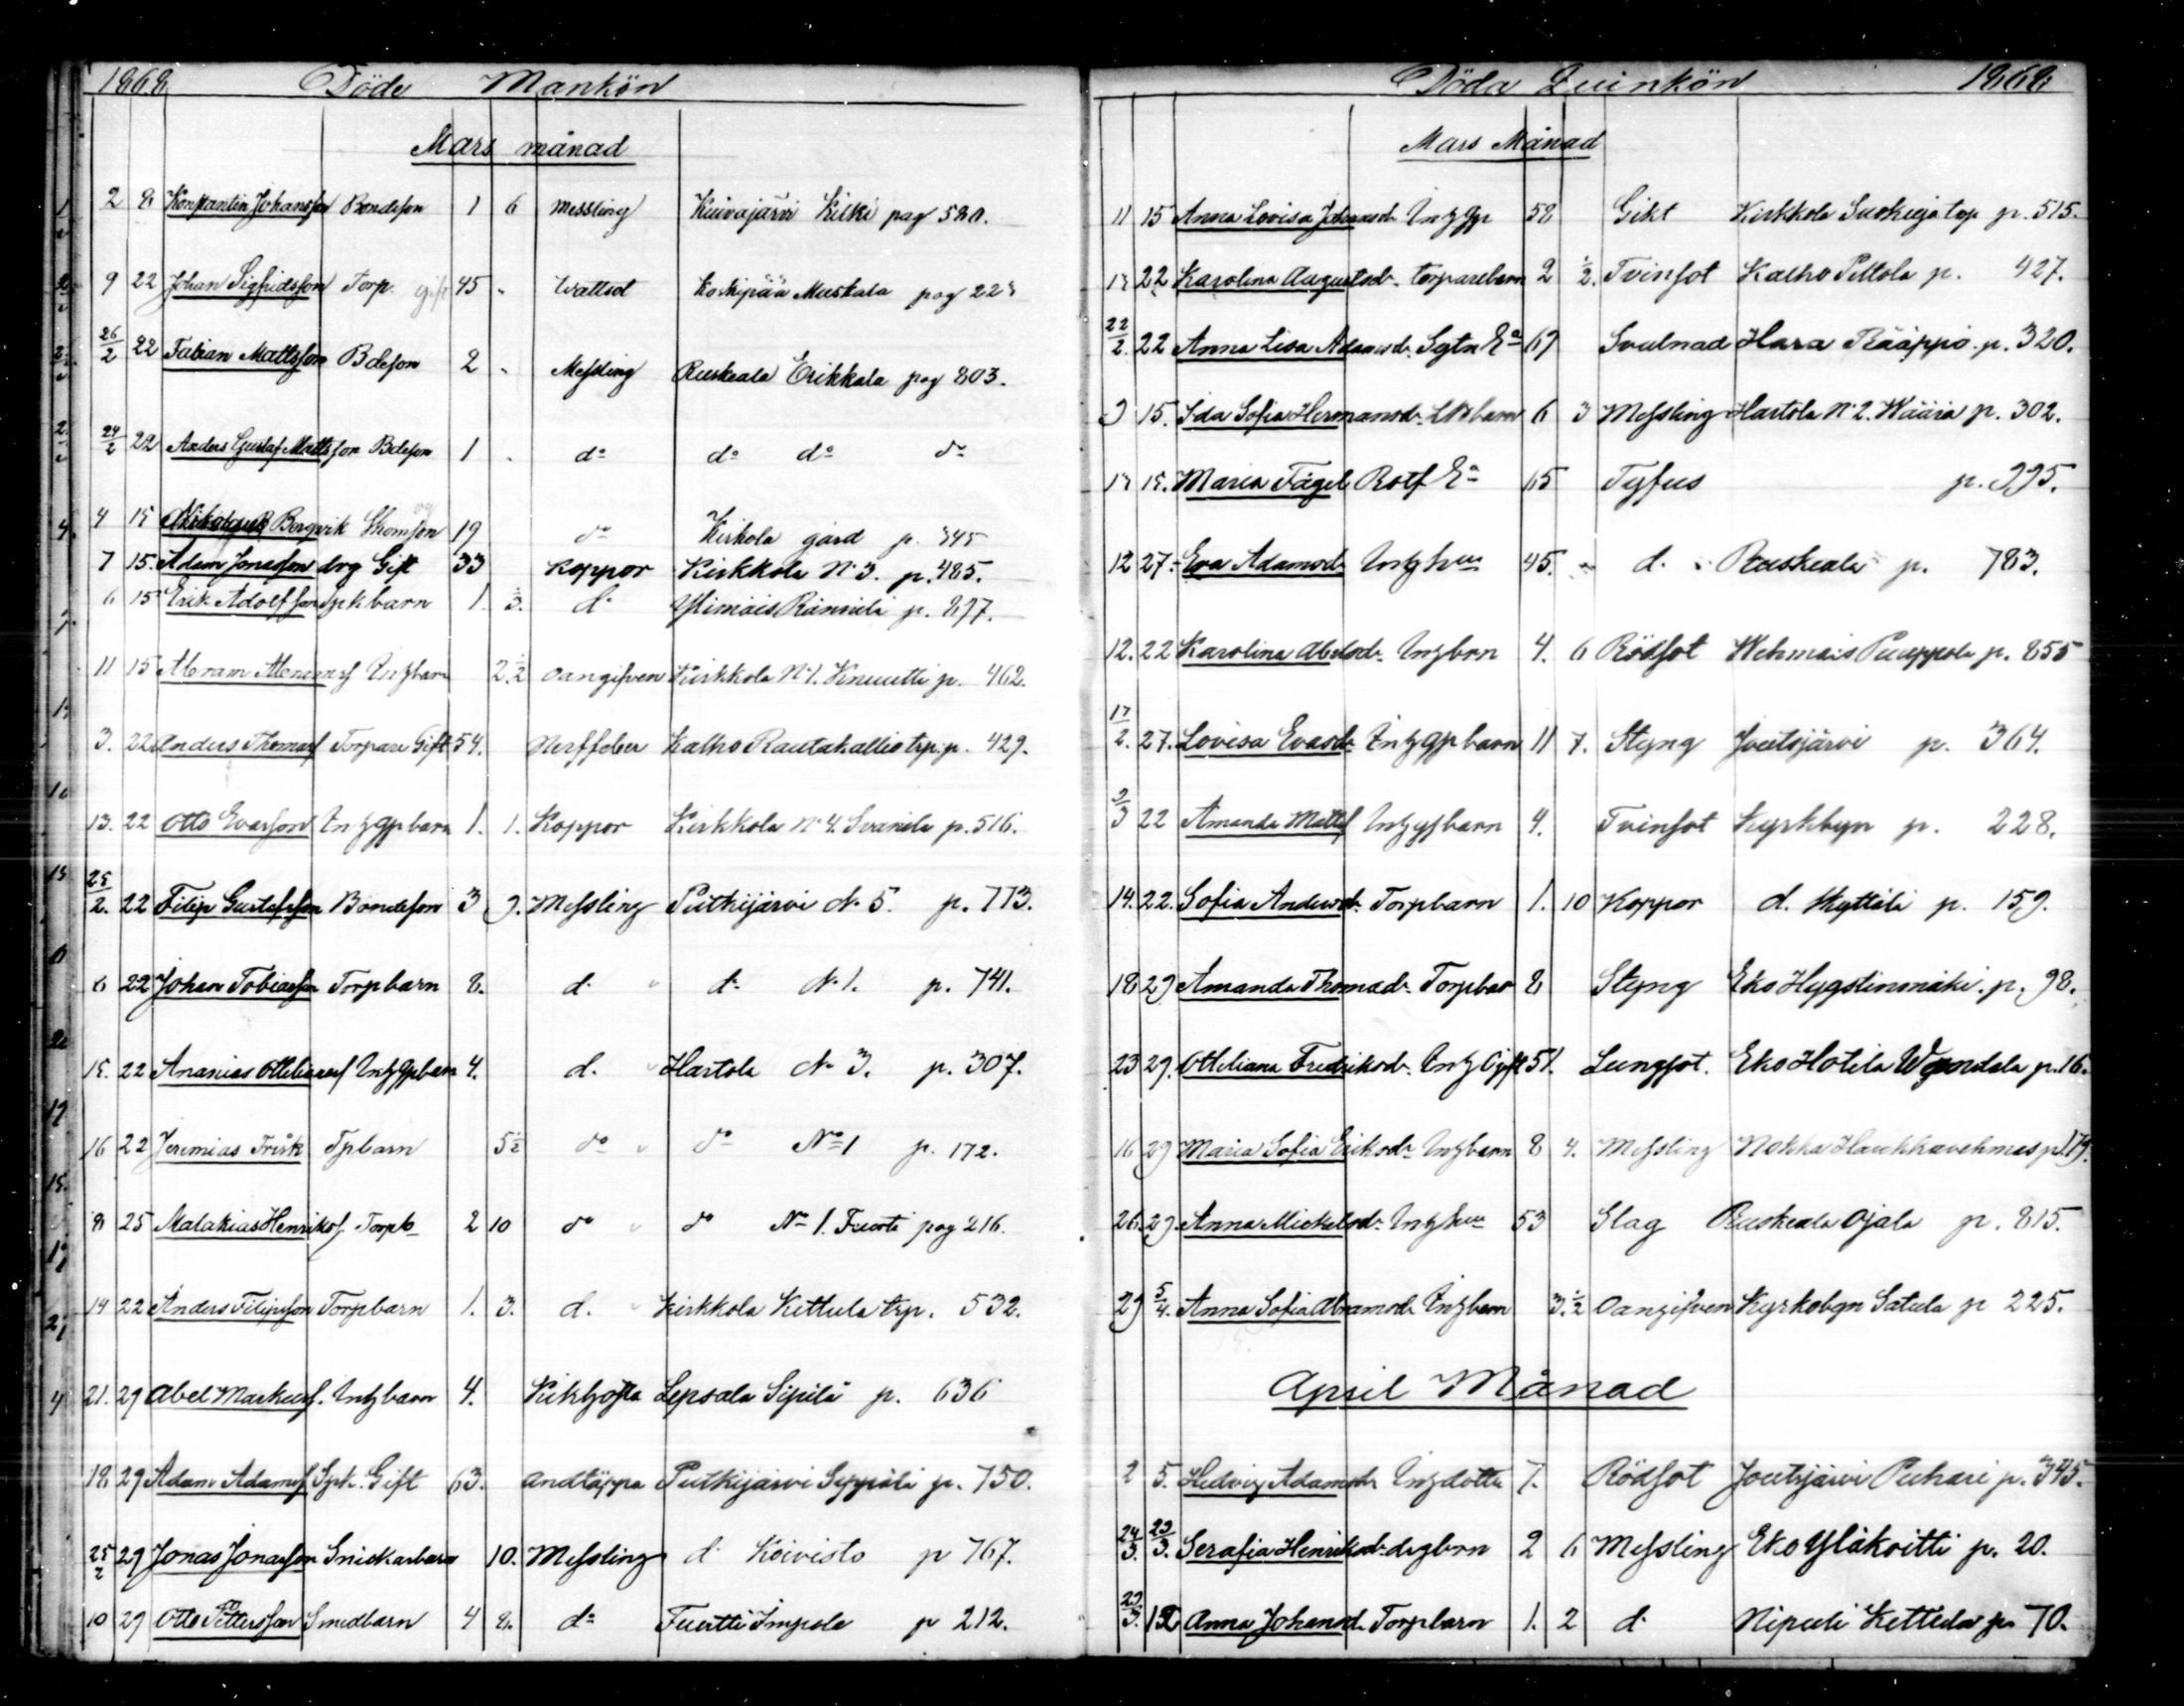 1868 Döde Mankön
Mars månad
2 8 Konstantin Johansson Bondeson 1 6 Messling Kuivajärvi Kilki pag 580.
9 22 Johan Sigfridsson Torp. gift 45 " Wattsot Koskipää Muskala pag 228
26/2 22 Fabian Mattsson Bdeson 2 " Messling Ruskeala Erikkala pag 803.
24/2 22 Anders Gustaf Mattsson Bdeson 1 " do do do do
4 15 Bergvik Thomson 19 do Kirkola gård p. 345
7 15. Adam Jonasson drg Gift 33 Koppor Kirkkola No 3. p. 485.
6 15 Erik Adolfsson Spk barn 1. 3. do Ylimäis Rämäli p. 877.
11 15 Abram Abramss Inhbarn 2.½ Oangifven Kirkkola No 1. Knuutti p. 462.
3. 22 Anders Thomass Torpare Gift 54. Nerffeber Kalho Rautakallio trp. p. 429.
13. 22 Otto Evasson Inhgpbarn 1. 1. Koppor Kirkkola No 4. Svanila p. 516.
25/2. 22 Filip Gustafsson Bondeson 3 9. Messling Putkijärvi No 5. p. 773.
6 22 Johan Tobiasson Torpbarn 8. d. do No 1. p. 741.
15. 22 Ananias Ottilianass Inhgpbarn 4. d. Hartola No 3. p. 307.
16 22 Jeremias Frisk Tpbarn 5½ do do No 1 p. 172.
8 25 Malakias Henrikss. Torpb 2 10 do do No 1. Tuusti pag 216.
14 22 Anders Filipsson Torpbarn 1. 3. d. Kirkkola Kettula trp. 532.
21. 29 Abel Markuss. Inhbarn 4. Kikhosta Lepsala Sipilä p. 636
18 29 Adam Adamss Spk. Gift 63. Andtäppa Putkijärvi Seppälä p. 750.
25/2 29 Jonas Jonasson Snickarbarn 10. Messling d. Koivisto p 767.
10 29 Otto Pettersson Smedbarn 4 8. do Tuertti Impola p 212.
Döda Quinkön 1868
Mars Månad
11 15 Anna Lovisa Johansdr Inhgp 58 Gikt Kirkkola Suokuja top p. 515.
22 Karolina Augustsdr. torparebarn 2 ½. Tvinsot Kalho Pettola p. 427.
22/2. 22 Anna Lisa Adamsdr. Sgtn Ea 67 Svulnad Hara Rääppö. p. 320.
9 15. Ida Sofia Hermansdr. LKbarn 6 3 Messling Hartola No 2. Wääriä p. 302.
15. Maria Fågel Rotf Ea 65 Tyfus p. 295.
12 27. Eva Adamsdr Inhhuu 45. d. Ruskeala p. 783.
12. 22 Karolina Abelsdr. Inhbrn 4. 6 Rödsot Wehmais Puuppola p. 855
17/2. 27. Lovisa Evasdr Inhgpbarn 11 7. Styng Joutsjärvi p. 364.
2/3 22 Amanda Mattsd Inhgpbarn 4. Tvinsot Kyrkbyn p. 228.
14. 22. Sofia Andersdr. Torpbarn 1. 10 Koppor d. Kyttälä p. 159.
18 29 Amanda Thomasdr. Torpbar 8 Styng Eko Hygstinmäki. p. 98.
23 29. Ottiliana Fredriksdr. Inh Ogift 51. Lungsot. Eko Hotila Wendala p. 16.
16 29 Maria Sofia Eriksdr Inhbarn 8 4. Messling Nokka Haukkavehmas p 179.
26. 29. Anna Mickelsdr. Inhhuu 53 Slag Ruskeala Ojala p. 815.
29 5/4. Anna Sofia Abramsdr Inhbarn 3.½ Oangifven Kyrkobyn Satula p 225.
April Månad
2 5. Hedvig Adamsdr Inhdotter 7. Rödsot Joutsjärvi Puhari p. 345.
24/3. 29/3. Serafia Henriksdr. drgbrn 2 6 Messling Eko Yläkoitti p. 20.
29/3. 12 Anna Johansdr. Torpbarn 1. 2 d. Nipuli Kettula p. 70.